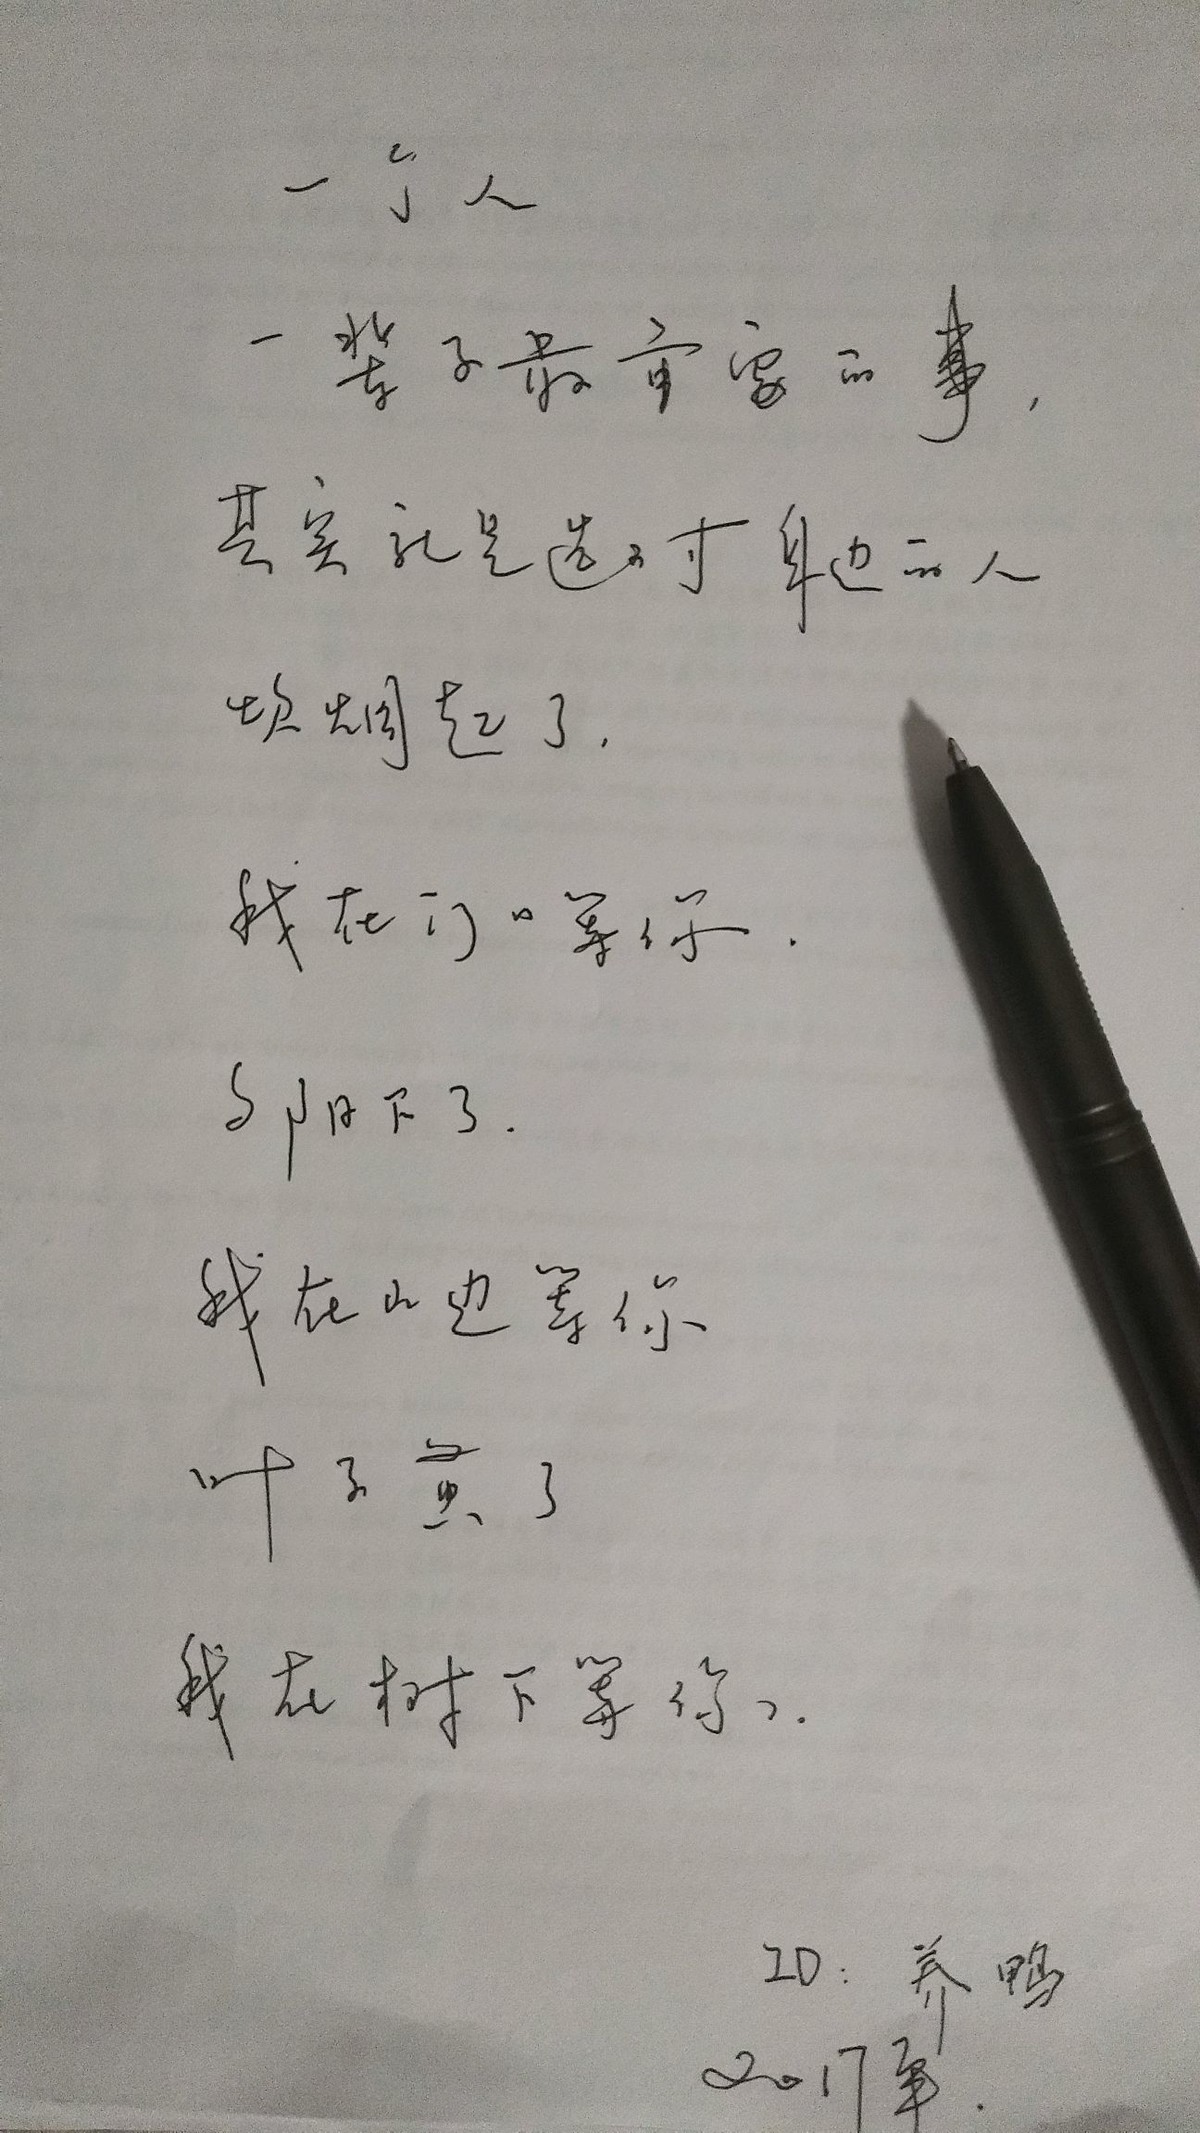 一个人
一辈子最重要的事,
其实就是选对身边的人
炊烟起了.
我在门口等你.
夕阳下了.
我在山边等你
叶子黄了
我在树下等你.
ID: 养鸭
2017年.